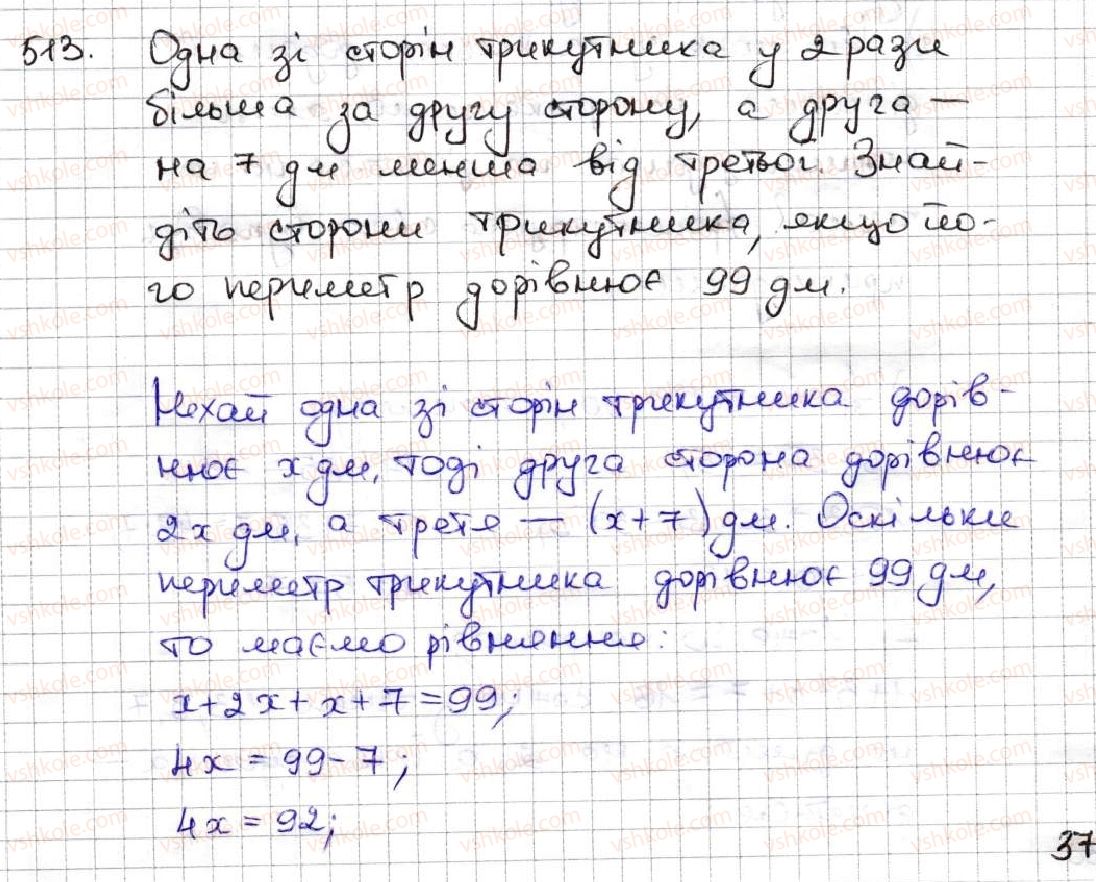 513. Одна зі сторін трикутника у 2 рази
більша за другу сторону, а друга –
на 7 дм менша від третьої. Знай-
діть сторони трикутника, якщо йо-
го периметр дорівнює 99 дм.
Нехай одна зі сторін трикутника дорів-
нює x дм, тоді друга сторона дорівнює
2x дм, а третя – (x+7) дм. Оскільки
периметр трикутника дорівнює 99 дм,
то маємо рівняння:
x+2x+x+7=99;
4x=99-7;
4x=92;
37
vshkole.com